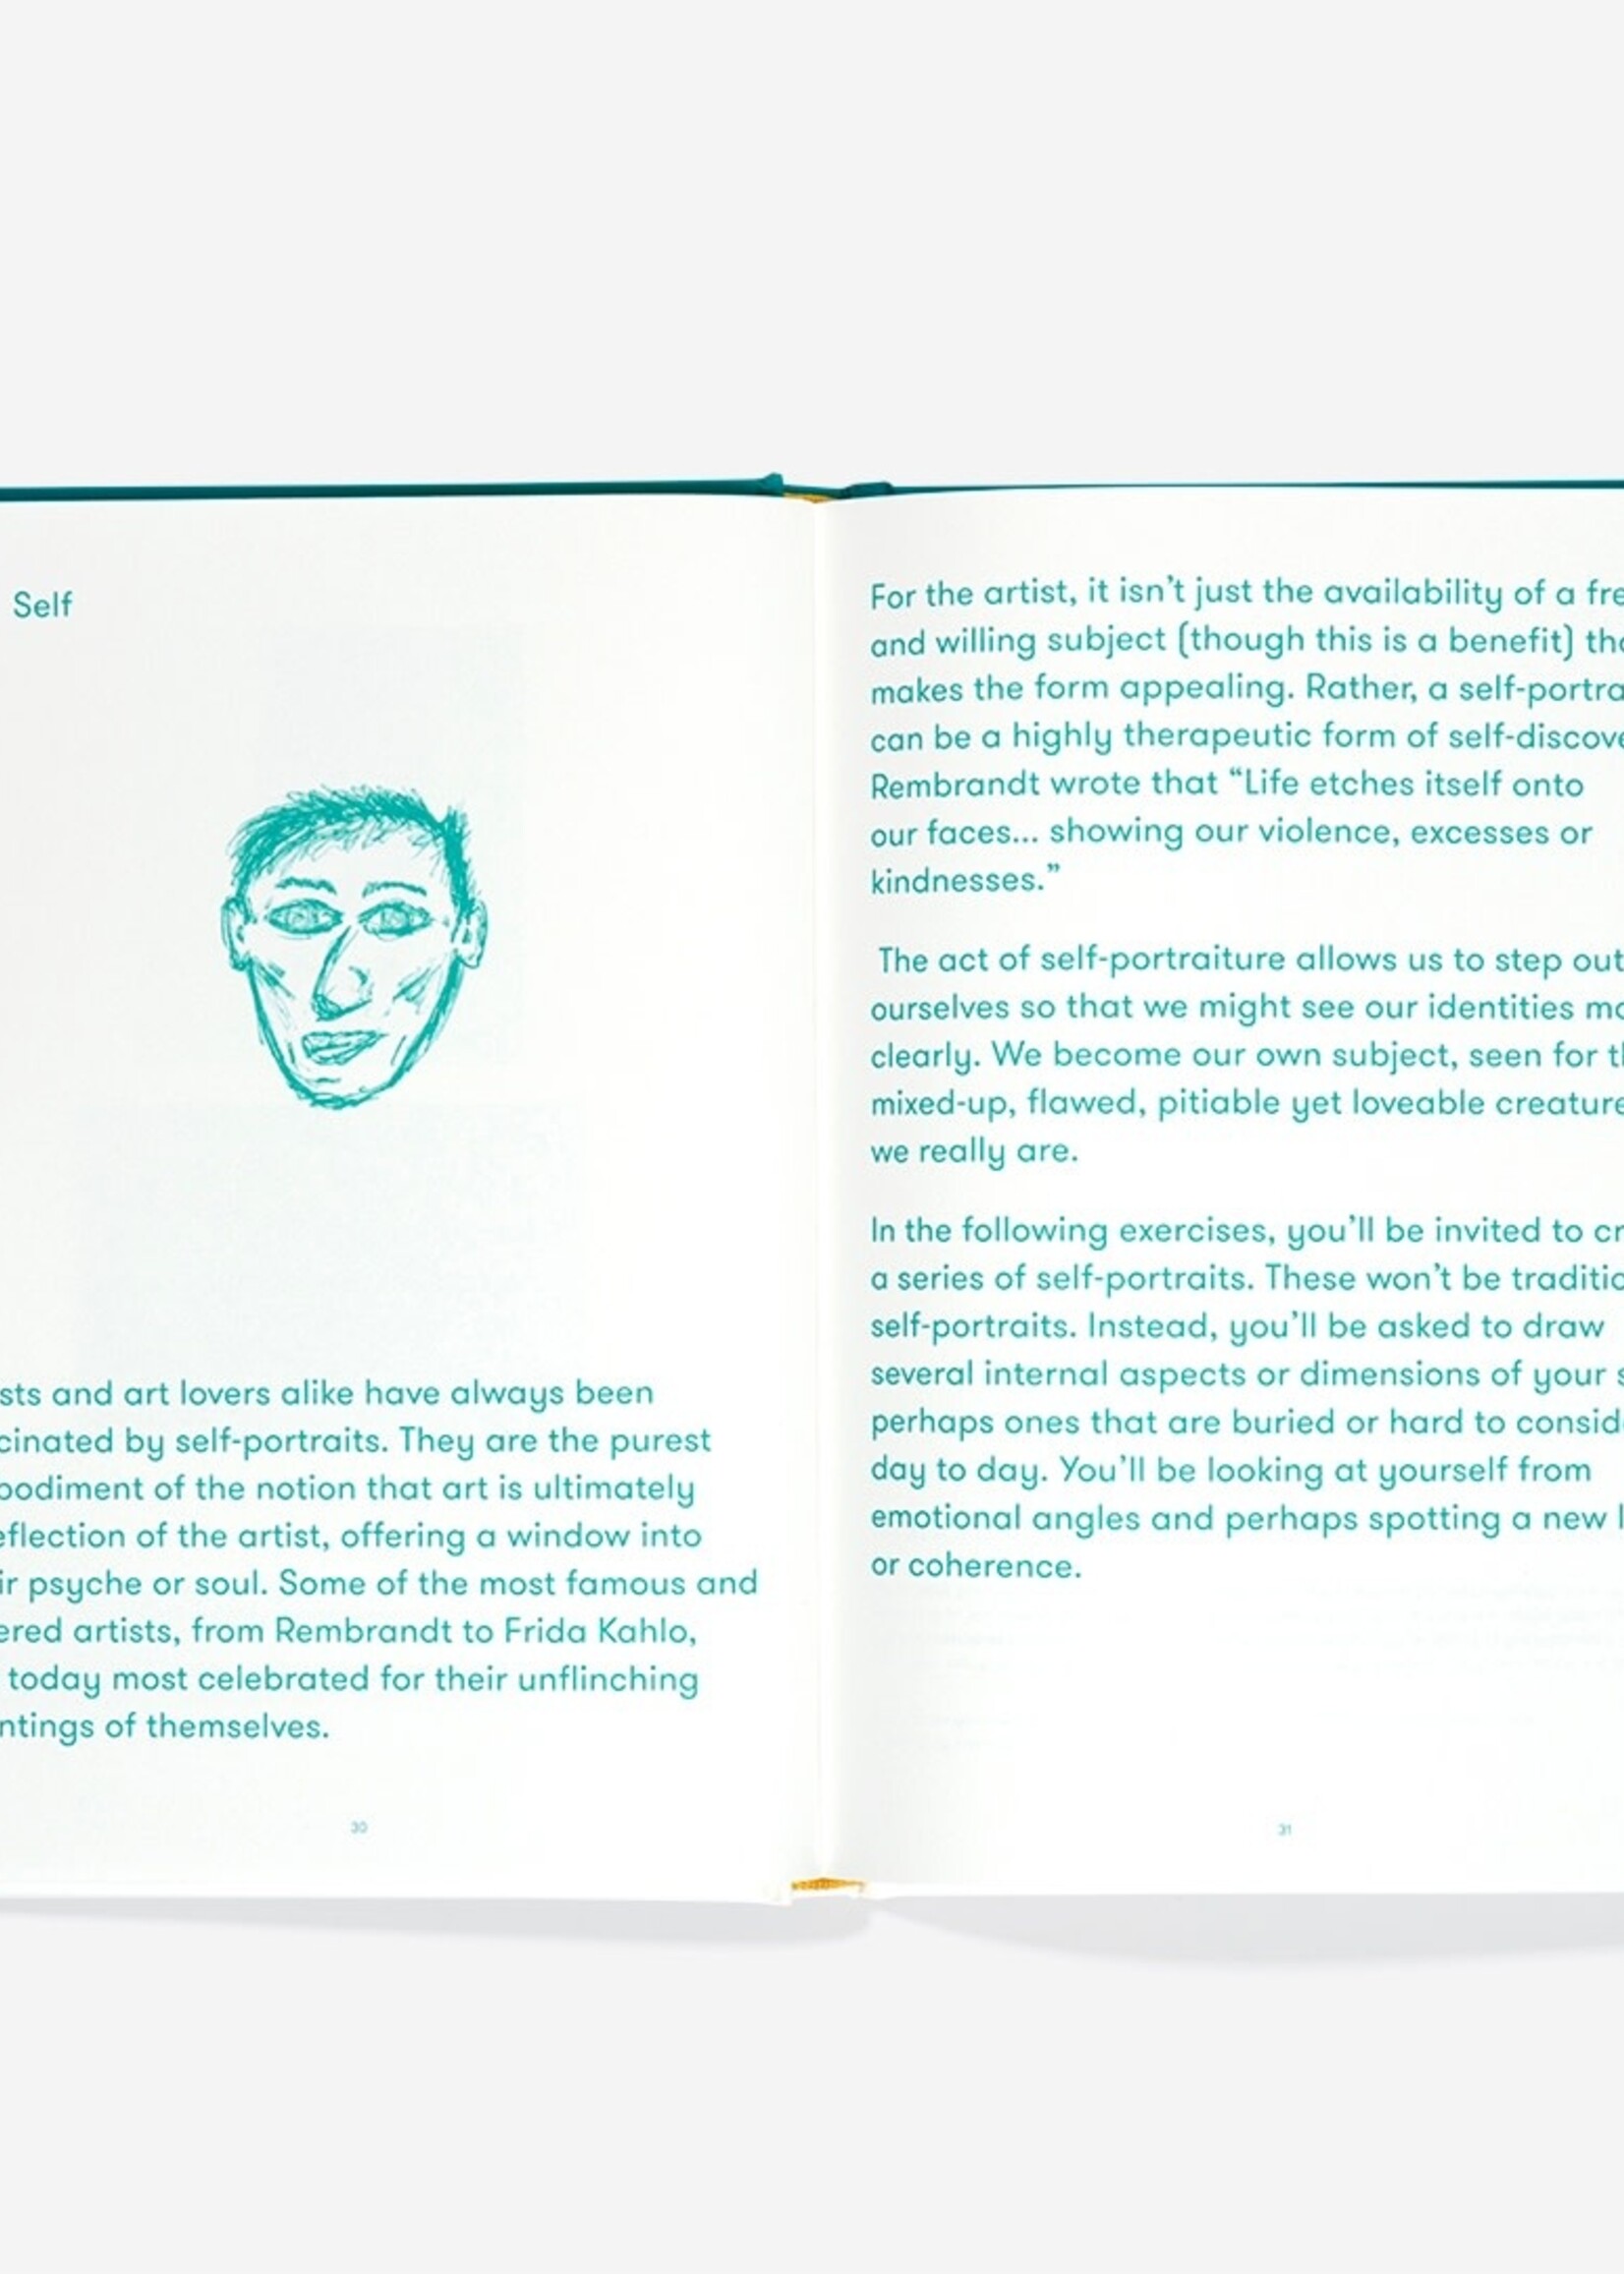 Self
sts and art lovers alike have always been
cinated by self-portraits. They are the purest
bodiment of the notion that art is ultimately
eflection of the artist, offering a window into
ir psyche or soul. Some of the most famous and
ered artists, from Rembrandt to Frida Kahlo,
today most celebrated for their unflinching
ntings of themselves.
30
For the artist, it isn't just the availability of a fre
and willing subject (though this is a benefit) tha
makes the form appealing. Rather, a self-portra
can be a highly therapeutic form of self-discove
Rembrandt wrote that “Life etches itself onto
our faces... showing our violence, excesses or
kindnesses.”
The act of self-portraiture allows us to step out
ourselves so that we might see our identities mo
clearly. We become our own subject, seen for th
mixed-up, flawed, pitiable yet loveable creature
we really are.
In the following exercises, you'll be invited to cr
a series of self-portraits. These won't be traditio
self-portraits. Instead, you'll be asked to draw
several internal aspects or dimensions of your s
perhaps ones that are buried or hard to consid
day to day. You'll be looking at yourself from
emotional angles and perhaps spotting a new l
or coherence.
31